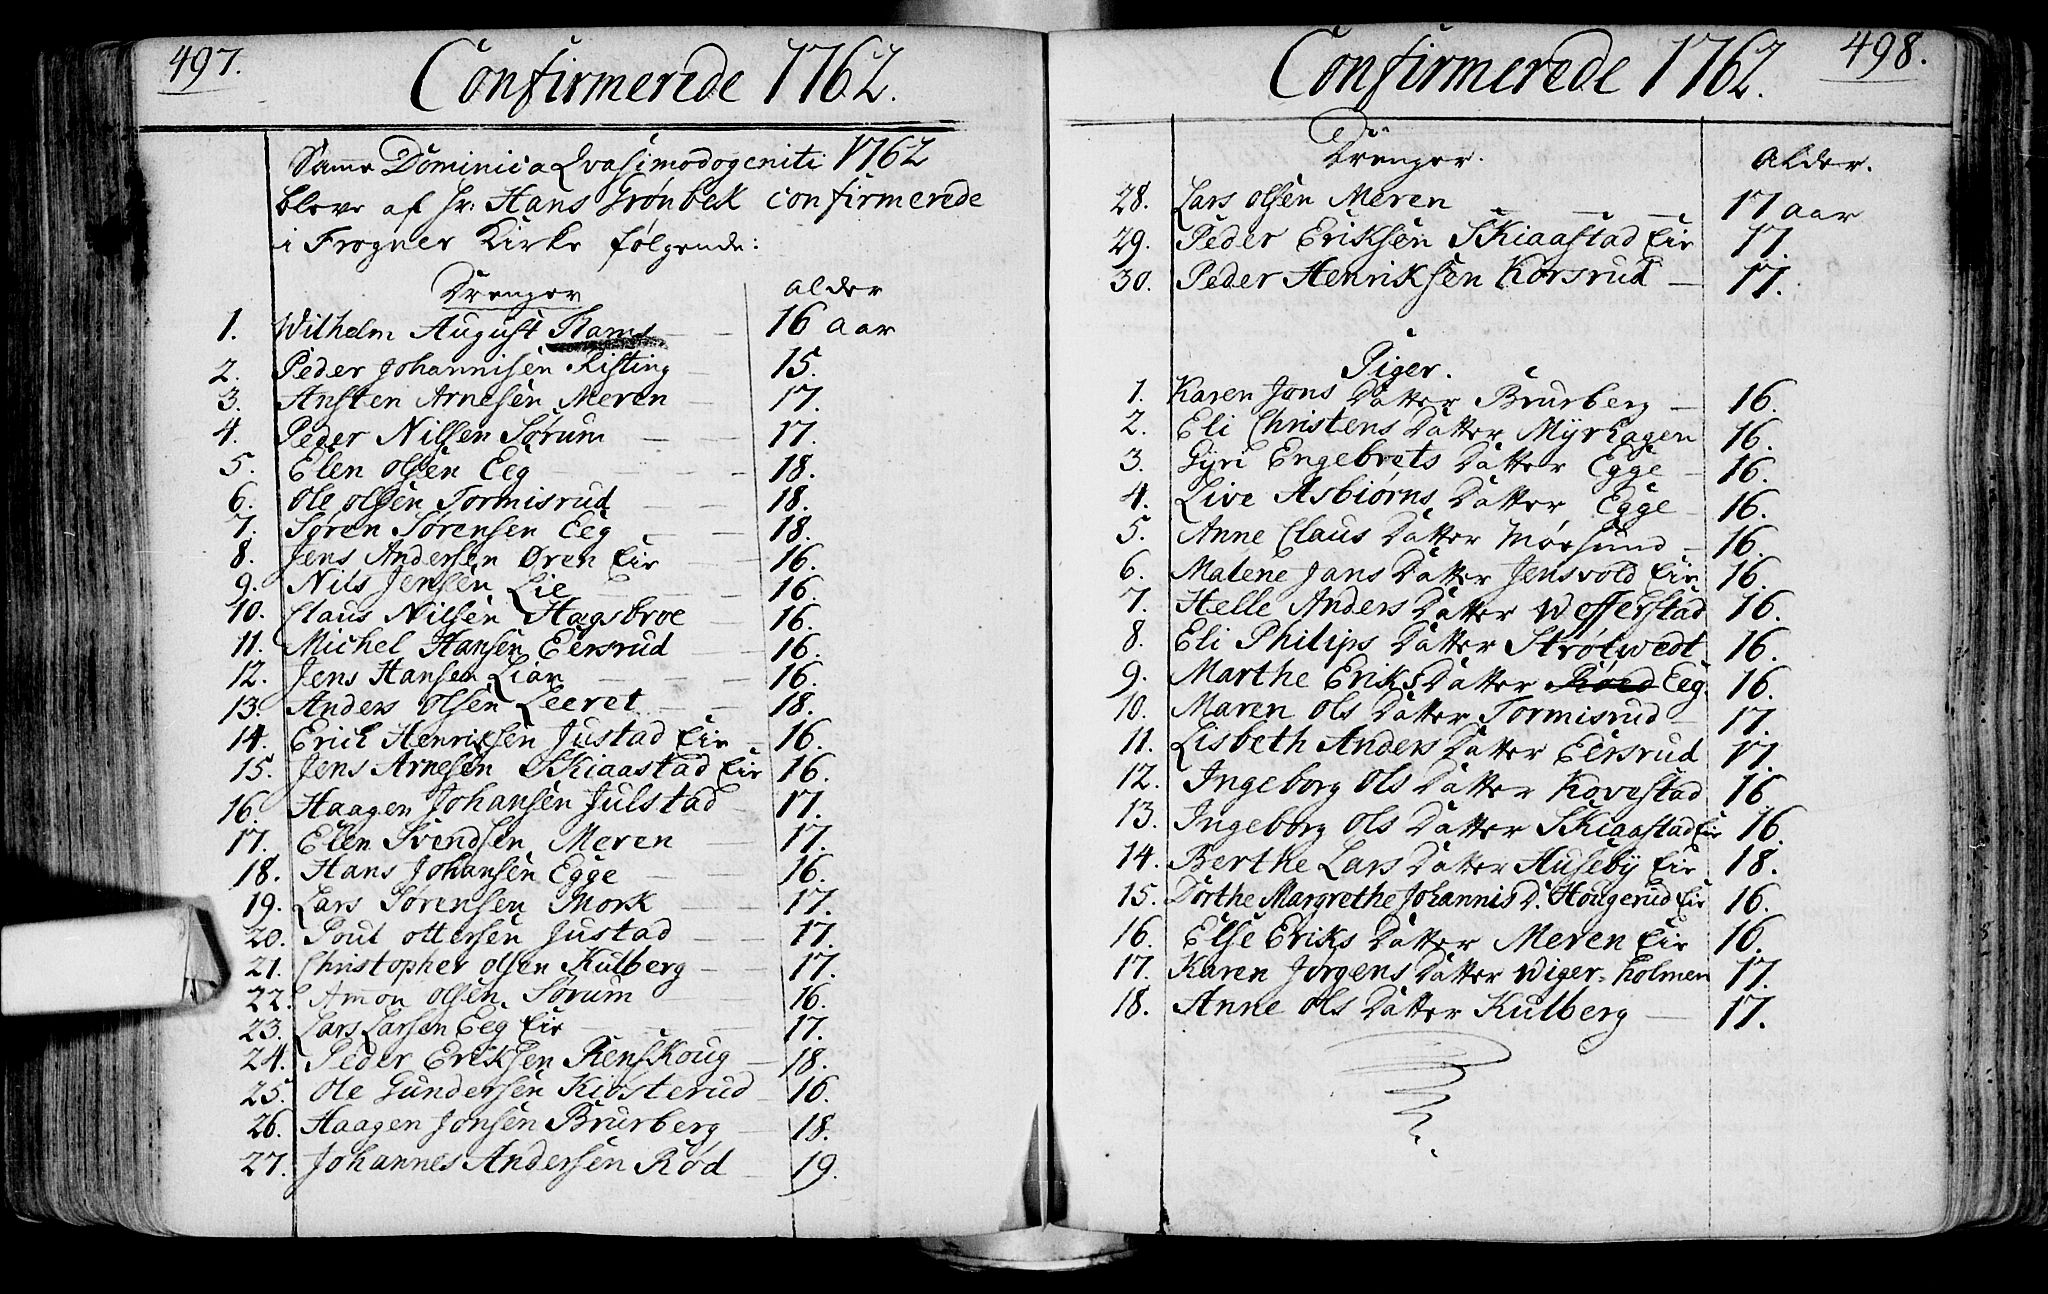 497.
Confirmerede 1762.
Samme Dominica Qvasimodogeniti 1762
bleve af Hr: Hans Grønbek confirmerede
i Frogner Kirke følgende:
Drenger alder
1. Wilhelm August Rams 16 aar
2. Peder Johannisen Risting 15.
3. Ansten Arnesen Meren 17.
4. Peder Nilsen Sørum 17.
5. Elen Olsen Eeg 18.
6. Ole Olsen Tormisrud 18.
7. Søren Sørensen Eeg 18.
8. Jens Andersen Øren Eie 16.
9. Nils Jensen Lie 16.
10. Claus Nilsen Hagsbroe 16.
11. Michel Hansen Eersrud 16.
12. Jens Hansen Lian 16.
13. Anders Olsen Leeret 18.
14. Erich Henriksen Justad Eie 16.
15. Jens Arnesen Skiaastad Eie 16.
16. Haagen Johansen Julstad 17.
17. Ellen Svendsen Meren 17.
18. Hans Johansen Egge 16.
19. Lars Sørensen Mork 17.
20. Poul Ottersen Justad 17.
21. Christopher Olsen Kulberg 17.
22. Amon Olsen Sørum 16.
23. Lars Larsen Eeg Eie 17.
24. Peder Eriksen Renskoug 18.
25. Ole Gundersen Kiosterud 16.
26. Haagen Jonsen Brurberg 18.
27. Johannes Andersen Rød 19.
498.
Confirmerede 1762.
Drenger. Alder.
28. Lars Olsen Meren 17 aar
29. Peder Eriksen Skiaastad Eie 17.
30. Peder Henriksen Korsrud 17.
Piger.
1. Karen Jons Datter Brurberg 16.
2. Eli Christens Datter Myrhagen 16.
3. Gyri Engebrets Datter Egge 16.
4. Live Asbiørns Datter Egge 16.
5. Anne Claus Datter Moesund 16.
6. Malene Jans Datter Jensvold Eie 16.
7. Helle Anders Datter Wefferstad 16.
8. Eli Philips Datter Strøtwedt 16.
9. Marthe Eriks Datter Røed Eeg 16.
10. Maren Ols Datter Tormisrud 17.
11. Lisbeth Anders Datter Eersrud 17.
12. Ingeborg Ols Datter Kovestad 16
13. Ingeborg Ols Datter Skiaastad Eie 16.
14. Berthe Lars Datter Huseby Eie 18.
15. Dorthe Margrethe Johannis D. Hougerud Eie 16.
16. Else Eriks Datter Meren Eie 16.
17. Karen Jørgens Datter Wiger-holmen 17.
18. Anne Ols Datter Kulberg 17.